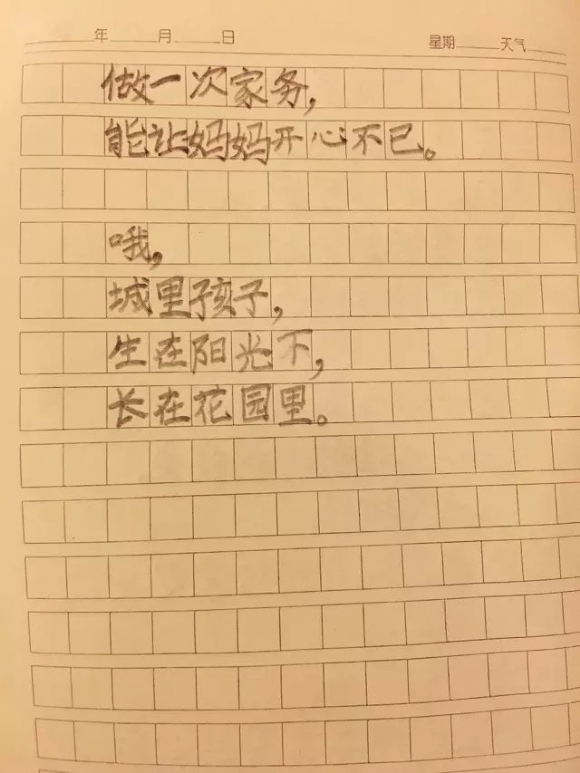 年 月 日 星期 天气
做一次家务，
能让妈妈开心不已。
哦，
城里孩子，
生在阳光不，
长在花园里。